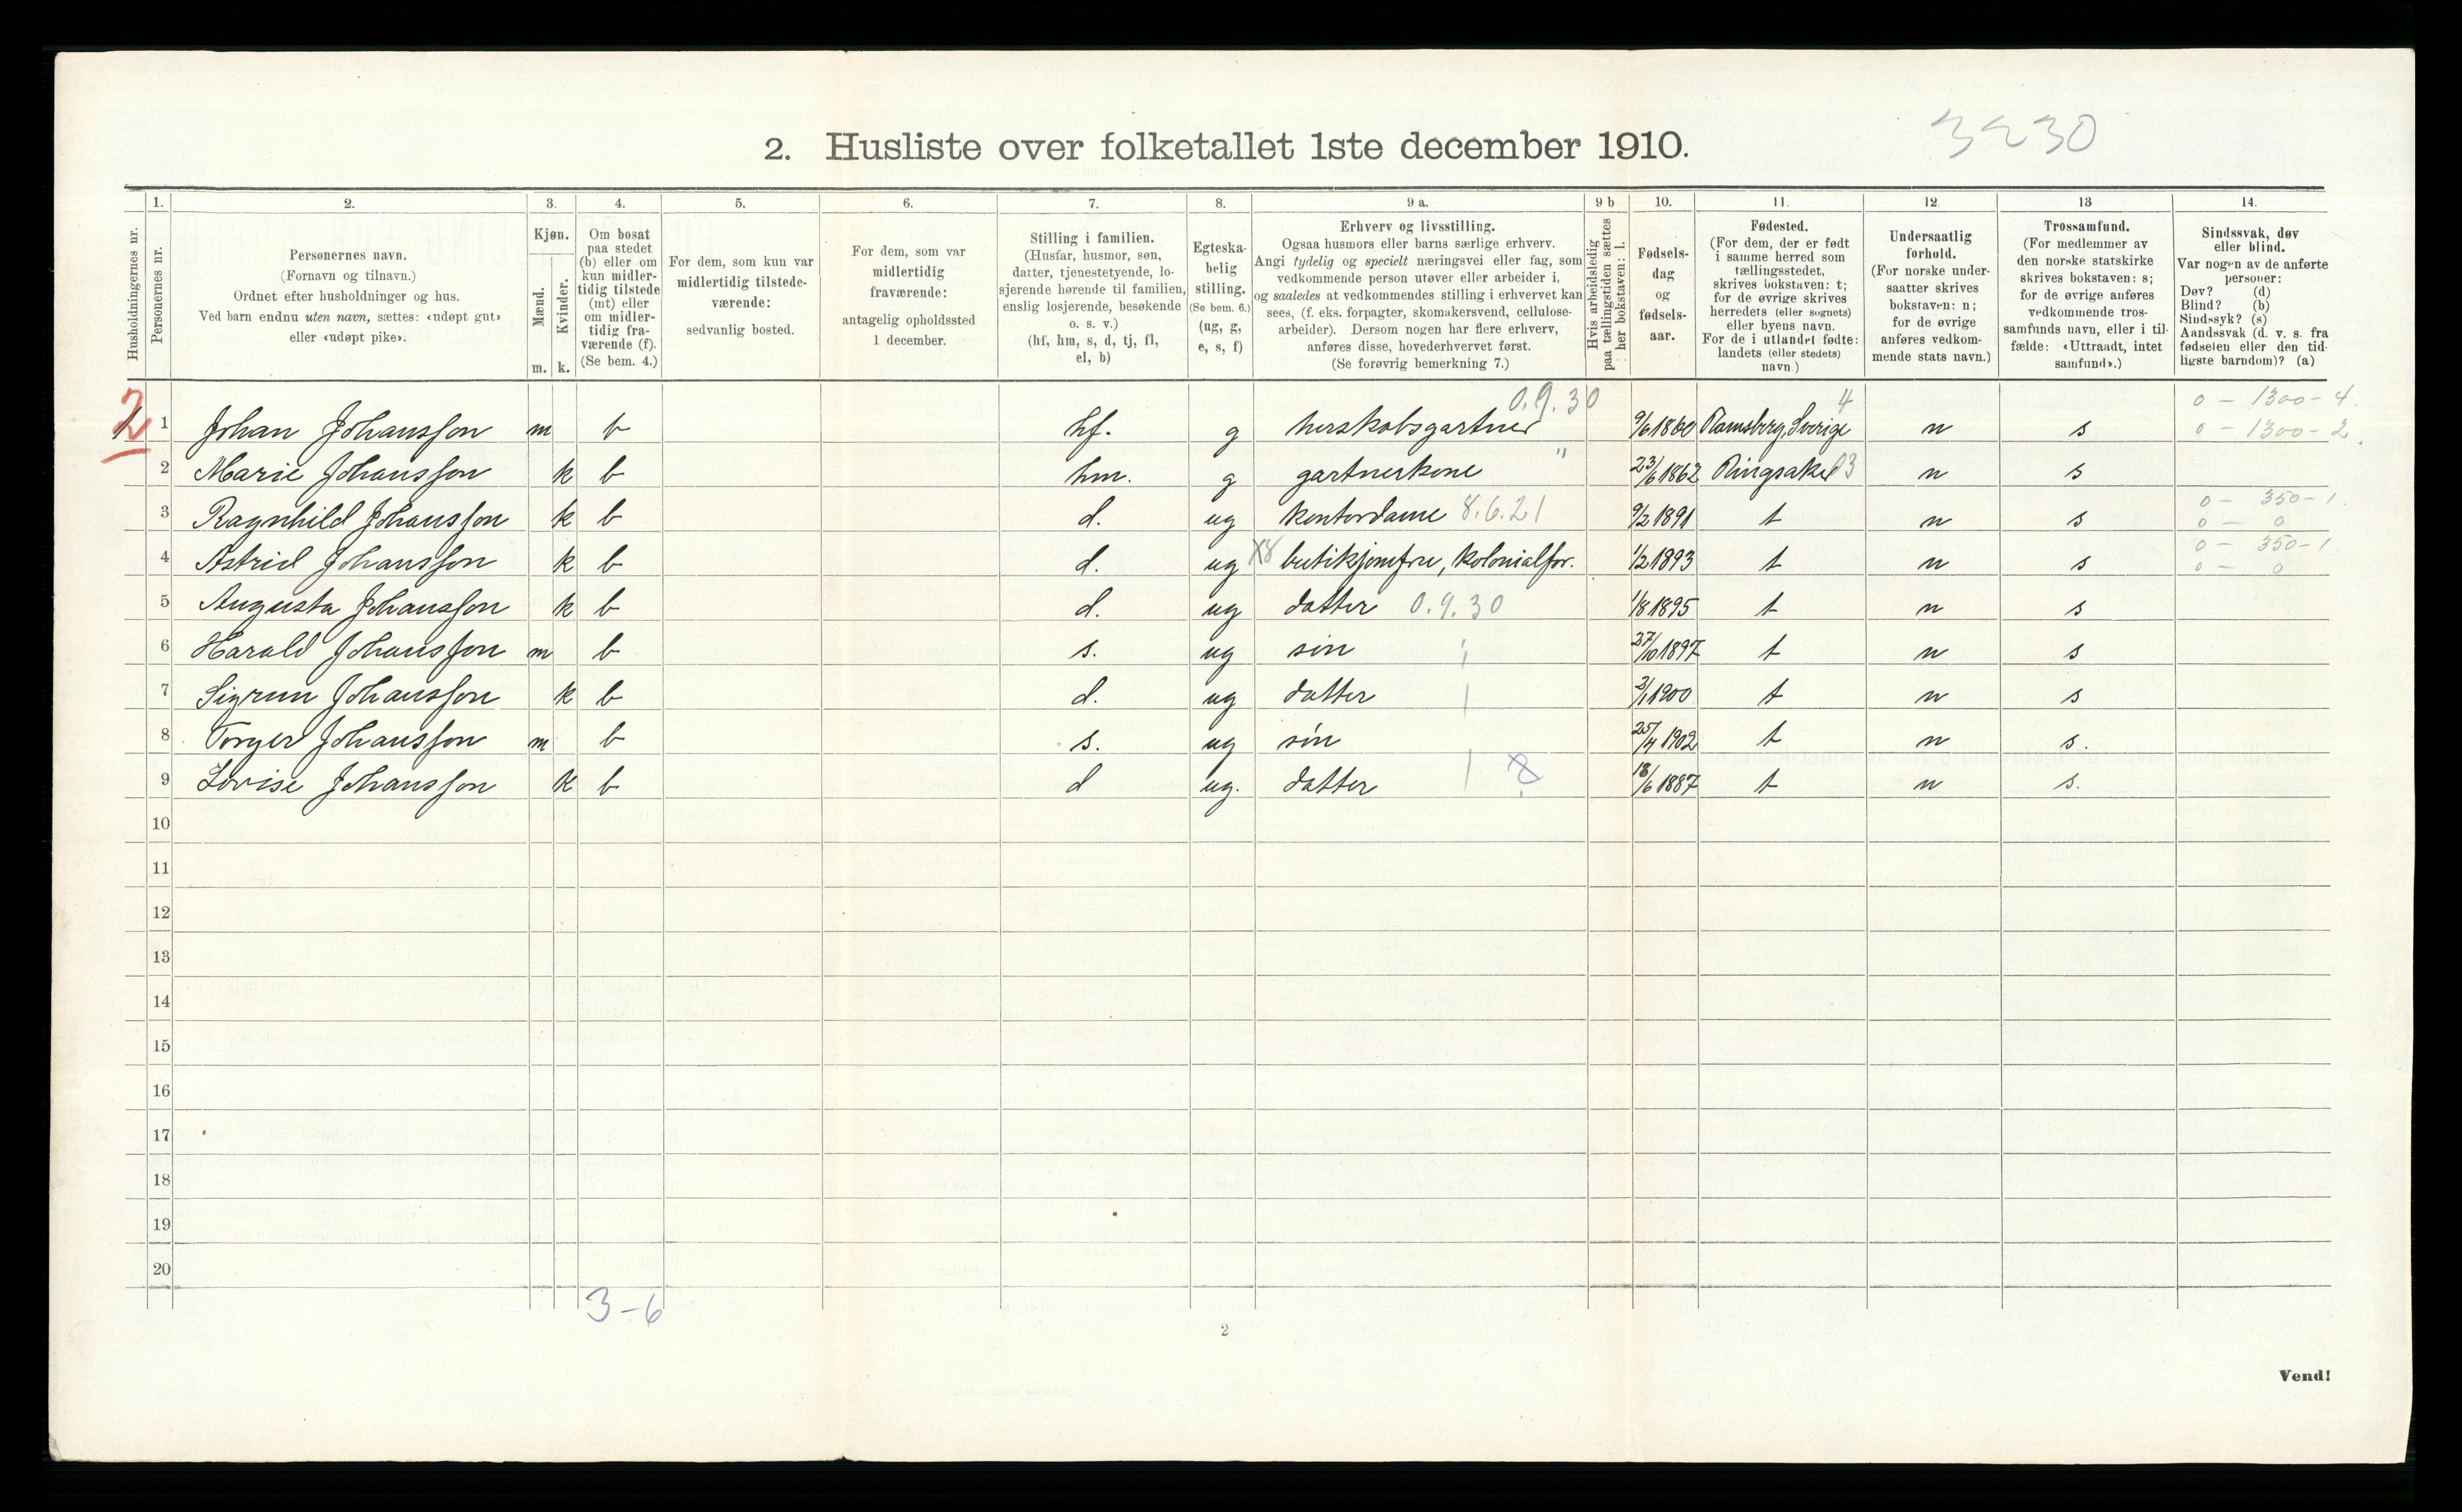 3230
2. Husliste over folketallet 1ste december 1910.
Husholdningernes nr.
1. Personernes nr.
2. Personernes navn.
(Fornavn og tilnavn.)
Ordnet efter husholdninger og hus.
Ved barn endnu uten navn, sættes: «udøpt gut»
eller «udøpt pike».
3. Kjøn.
Mænd. m.
Kvinder. k.
4. Om bosat
paa stedet
(b) eller om
kun midler-
tidig tilstede
(mt) eller
om midler-
tidig fra-
værende (f).
(Se bem. 4.)
5. For dem, som kun var
midlertidig tilstede-
værende:
sedvanlig bosted.
6. For dem, som var
midlertidig
fraværende:
antagelig opholdssted
1 december.
7. Stilling i familien.
(Husfar, husmor, søn,
datter, tjenestetyende, lo-
sjerende hørende til familien,
enslig losjerende, besøkende
o. s. v.)
(hf, hm, s, d, tj, fl,
el, b)
8. Egteska-
belig
stilling.
(Se bem. 6.)
(ug, g,
e, s, f)
9 a. Erhverv og livsstilling.
Ogsaa husmors eller barns særlige erhverv.
Angi tydelig og specielt næringsvei eller fag, som
vedkommende person utøver eller arbeider i,
og saaledes at vedkommendes stilling i erhvervet kan
sees, (f. eks. forpagter, skomakersvend, cellulose-
arbeider). Dersom nogen har flere erhverv,
anføres disse, hovederhvervet først.
(Se forøvrig bemerkning 7.)
9 b Hvis arbeidsledig
paa tællingstiden sættes
her bokstaven: l.
10. Fødsels-
dag
og
fødsels-
aar.
11. Fødested.
(For dem, der er født
i samme herred som
tællingsstedet,
skrives bokstaven: t;
for de øvrige skrives
herredets (eller sognets)
eller byens navn.
For de i utlandet fødte:
landets (eller stedets)
navn.)
12. Undersaatlig
forhold.
(For norske under-
saatter skrives
bokstaven: n;
for de øvrige
anføres vedkom-
mende stats navn.)
13 Trossamfund.
(For medlemmer av
den norske statskirke
skrives bokstaven: s;
for de øvrige anføres
vedkommende tros-
samfunds navn, eller i til-
fælde: «Uttraadt, intet
samfund».)
14. Sindssvak, døv
eller blind.
Var nogen av de anførte
personer:
Døv? (d)
Blind? (b)
Sindssyk? (s)
Aandssvak (d. v. s. fra
fødselen eller den tid-
ligste barndom)? (a)
0.9.30 4 0 - 1300 - 4.
2 1 Johan Johansson m b hf. g herskabsgartner 9/6 1860 Ramsberg, Sverige n s 0 - 1300 - 2.
2 Marie Johansson k b hm. g gartnerkone " 23/6 1862 Ringsaker 03 n s
0 - 350 - 1
3 Ragnhild Johansson k b d. ug kontordame 8.6.21 9/2 1891 t n s 0 - 0
0 - 350 - 1
4 Astrid Johansson k b d. ug X8 butikjomfru, kolonialfor. 1/2 1893 t n s 0 - 0
5 Augusta Johansson k b d. ug datter 0.9.30 1/8 1895 t n s
6 Harald Johansson m b s. ug søn 27/10 1897 t n s
7 Sigrun Johansson k b d. ug datter 2/1 1900 t n s
8 Torger Johansson m b s. ug søn 25/4 1902 t n s.
9 Lovise Johansson k b d ug. datter 18/6 1887 t n s.
10
11
12
13
14
15
16
17
18
19
20
3-6
2
Vend!